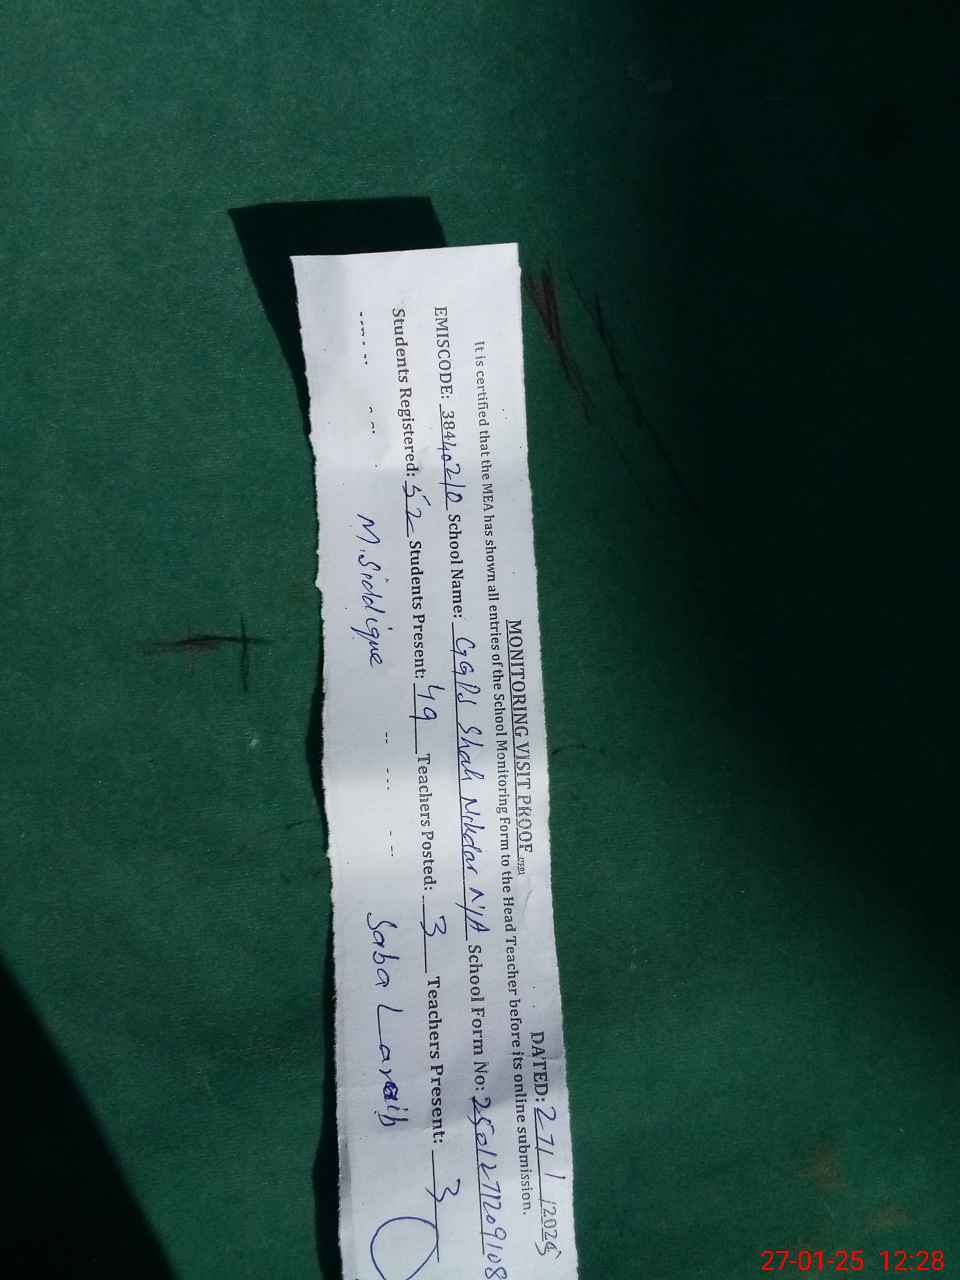 MONITORING VISIT PROOF
DATED: 27/1/2025
It is certified that the MEA has shown all entries of the School Monitoring Form to the Head Teacher before its online submission.
EMISCODE: 38440210 School Name: GGPS Shah Nikdar N/A School Form No: 2501271209108
Students Registered: 52 Students Present: 49 Teachers Posted: 3 Teachers Present: 3
M. Siddique Saba Laraib
27-01-25 12:28